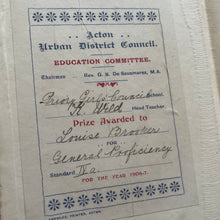 Acton
Urban District Council.
EDUCATION COMMITTEE.
Chairman Rev. G. S. De Sausmarez, M.A.
Priory Girls Council School.
K. Wild Head Teacher.
Prize Awarded to
Louise Brooker
for
General Proficiency
Standard IIa
FOR THE YEAR 1906-7.